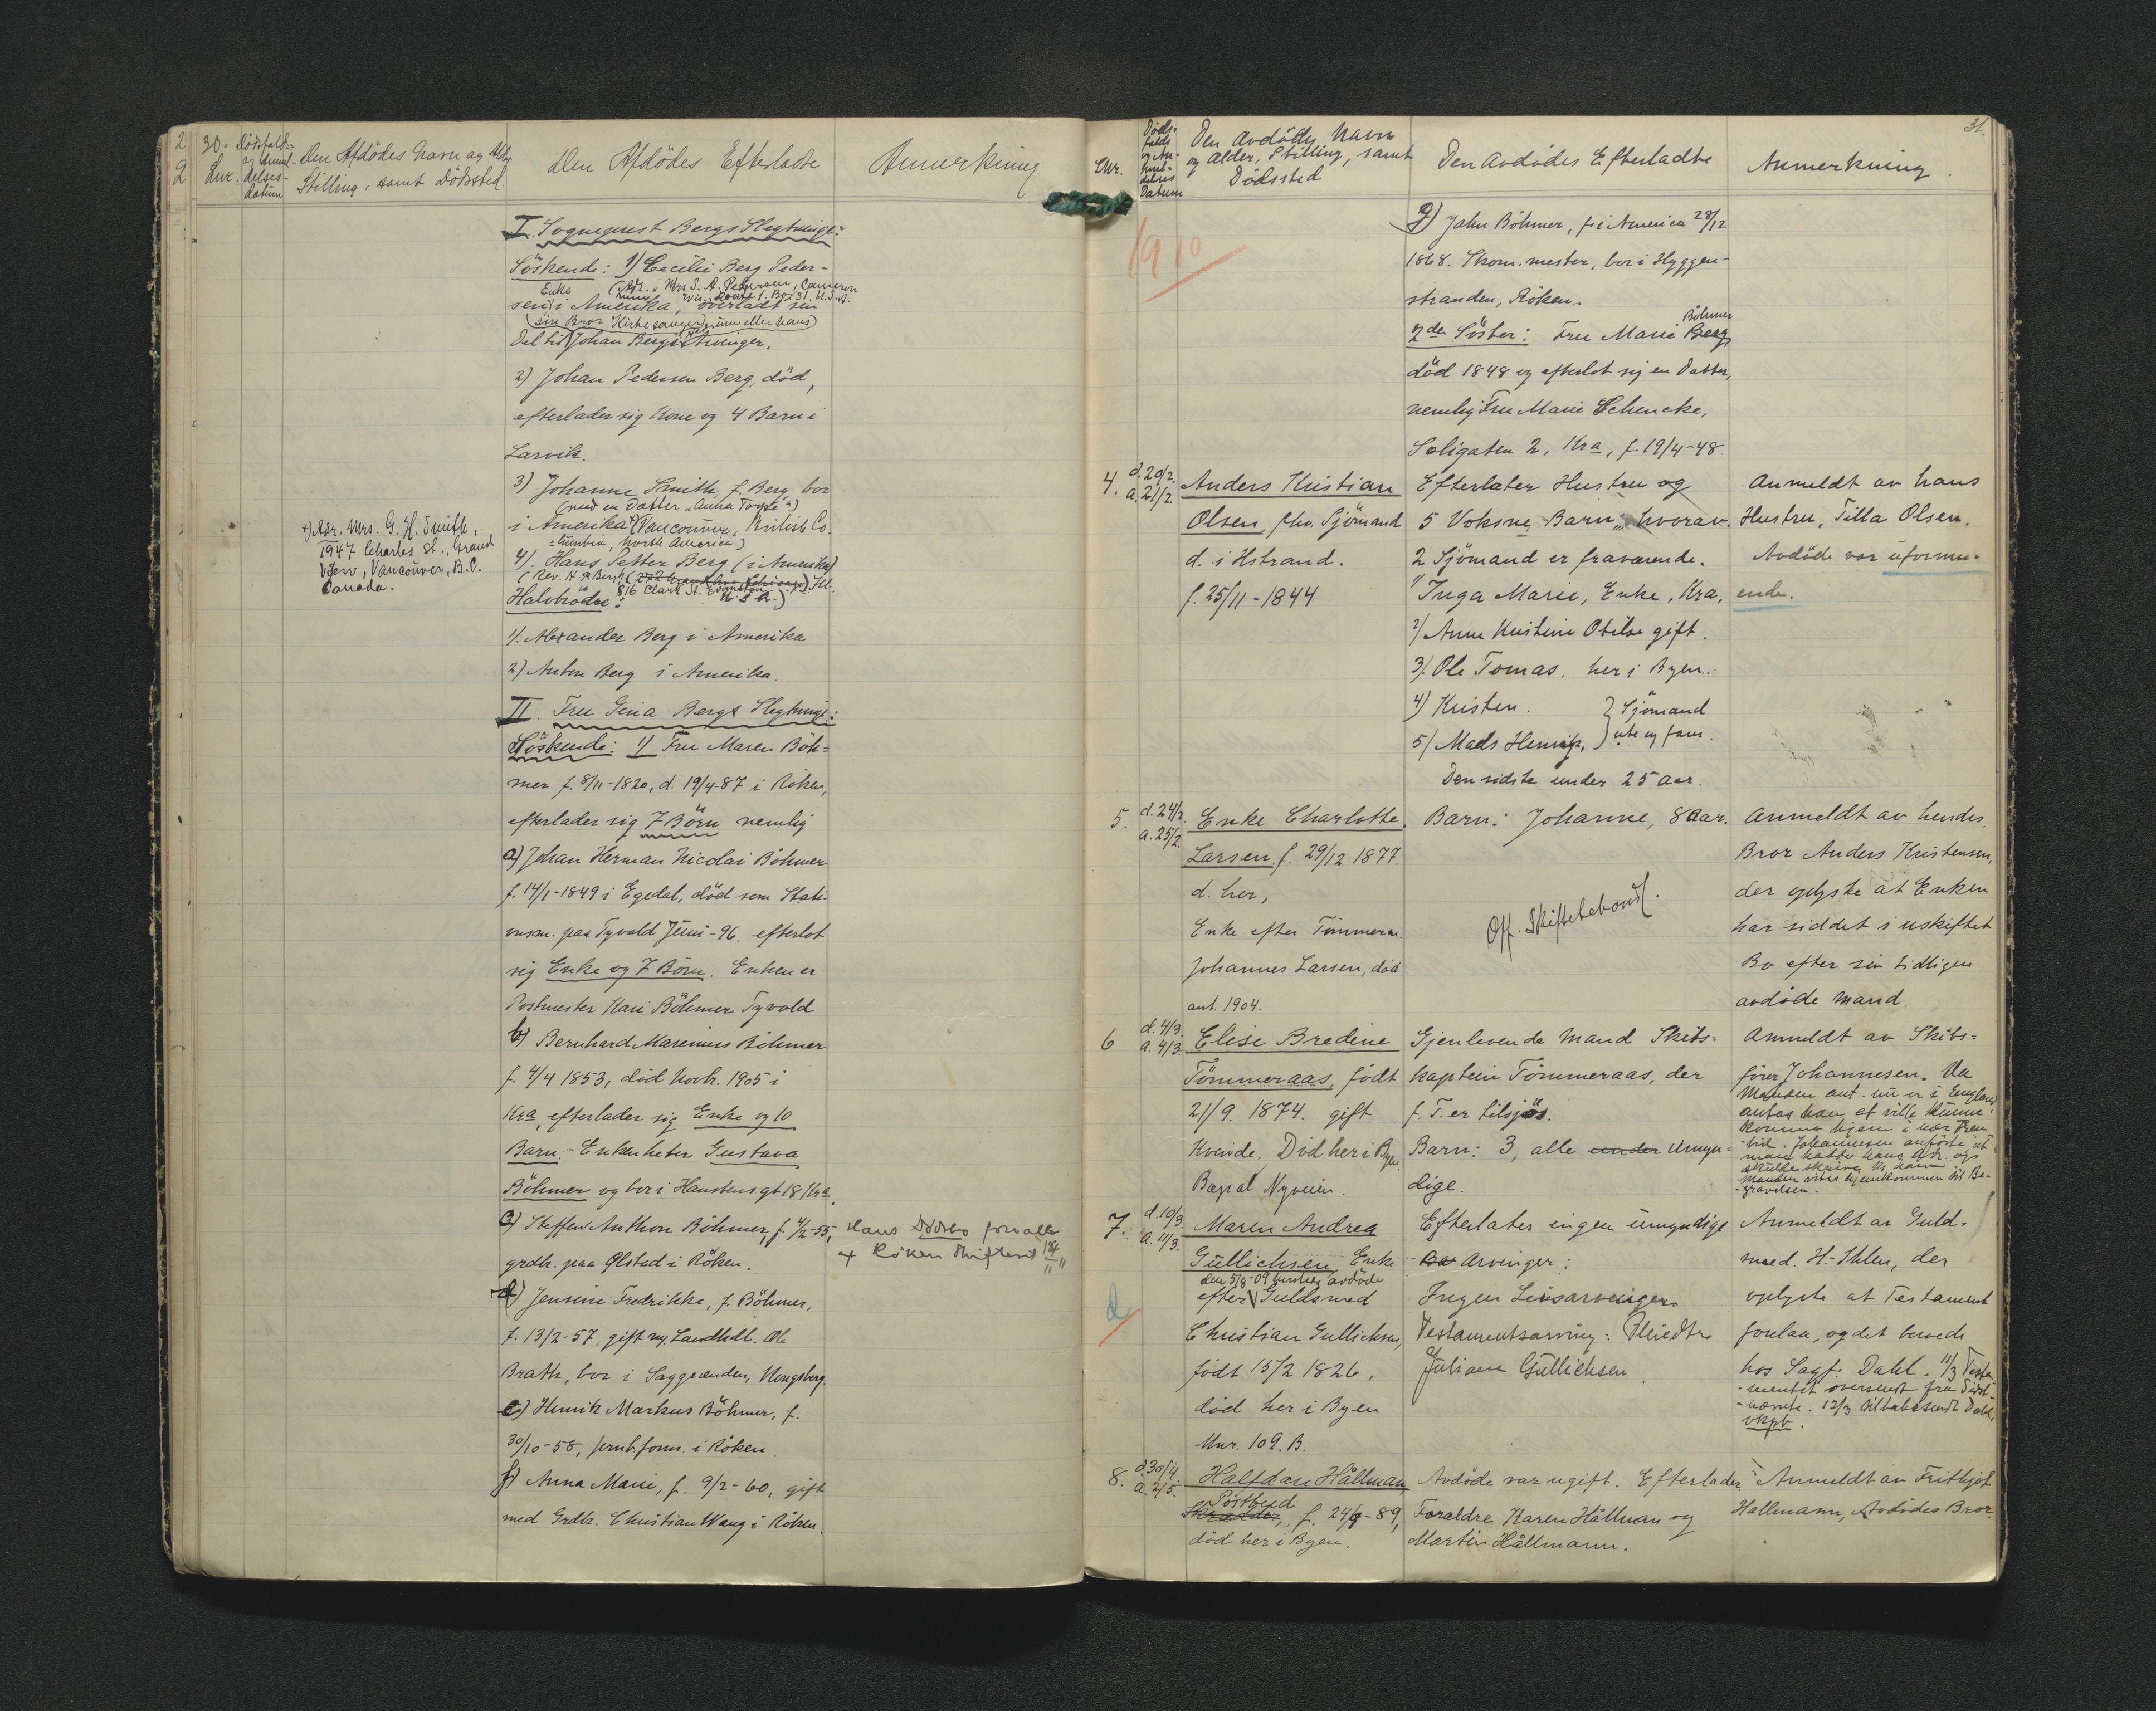 30.
Dödsfalds-
og Anmel-
delses-
datum
Den Afdödes Navn og Alder
Stilling, samt Dödssted.
Den Afdödes Efterladte
Anmerkning
I. Sogneprest Bergs Slegtninge:
Söskende: 1) Cecilie Berg Peder-
Enke (Adr. Mrs S. A. Pedersen, Cameron
Wis. Route 1. Box 31. U.S.A.
sen i Amerika, overladt sin
(sin Bror Kirkesanger
Del til Johan Bergs Arvinger.
2) Johan Pedersen Berg, död,
efterlader sig Kone og 4 Barn i
Larvik.
3) Johanne Smith f. Berg, bor
(med en Datter "Anna Torp")
i Amerika +) (Vancouver, British Co-
lumbia, North America)
+) Adr. Mrs. G. H. Smith,
1947 Charles St., Grand
View, Vancouver, B.C.
Canada.
4). Hans Petter Berg (i Amerika)
(Rev. H. P. Berg,
816 Clark St. Evanston Ill.
U.S.A.)
Halvbrödre:
1). Alexander Berg i Amerika
2) Anton Berg i Amerika.
II. Fru Gina Bergs Slegtninge:
Söskende: 1) Fru Maren Böh-
mer f. 8/11-1820, d. 19/4-87 i Röken,
efterlader sig 7 Börn nemlig
a) Johan Herman Nicolai Böhmer
f. 14/1-1849 i Egedal, död som Stati-
onsm. paa Tyvold Juni -96. efterlot
sig Enke og 7 Börn. Enken er
Postmester Kari Böhmer Tyvold
b) Bernhard Marenius Böhmer
f. 4/4 1853, död Novbr. 1905 i
Kra, efterlader sig Enke og 10
Barn. - Enken heter Gustava
Böhmer og bor i Haustensgt 18 Kra.
c) Steffen Anthon Böhmer, f. 4/2-55,
grdbr. paa Ølstad i Röken.
Hans Dödsbo
Röken Skifterett
d) Jensine Fredrikke, f. Böhmer,
f. 13/2-57, gift m. Landhdl. Ole
Brath, bor i Saggrenden, Kongsberg.
e) Henrik Markus Böhmer, f.
30/10-58, i Röken.
f) Anna Marie, f. 9/2-60, gift
med Grdbr. Christian Wang i Röken.
31.
Lnr.
Döds-
falds
og An-
mel-
delses
Datum
Den Avdödes Navn
og Alder, Stilling, samt
Dödssted
Den Avdödes Efterladte
Anmerkning.
1910
g) John Böhmer, f. i America 28/12
1868. Skom. mester, bor i Hyggen-
stranden, Röken.
2den Söster: Fru Marie Böhmer Berg,
död 1848 og efterlot sig en Datter,
nemlig Fru Marie Schencke,
Soligaten 2, Kra, f. 19/4-48.
4. d. 20/2. a. 21/2
Anders Kristian
Olsen, fhv. Sjömand
d. i Hstrand.
f. 25/11-1844
Efterlater Hustru og
5 Voksne Barn, hvorav
2 Sjömand er fraværende.
1) Inga Marie, Enke, Kra,
2) Anne Kristine Otilie gift.
3) Ole Tomas. her i Byen.
4) Kristen.
5) Mads Henrik,
} Sjömand
ute og fare.
Den sidste under 25 aar.
Anmeldt av hans
Hustru, Tilla Olsen.
Avdöde var uformu-
ende.
5. d. 24/2. a. 25/2.
Enke Charlotte
Larsen, f. 29/12 1877.
d. her,
Enke efter Tömmerm.
Johannes Larsen, död
ant. 1904.
Barn: Johanne, 8 aar.
Off. Skiftebehandl.
Anmeldt av hendes
Bror Anders Kristensen,
der oplyste at Enken
har siddet i uskiftet
Bo efter sin tidligere
avdöde Mand.
6 d. 4/3. a. 4/3.
Elise Bredine
Tömmeraas, födt
21/9. 1874. gift
Kvinde. Död her i Byen
Bapal Nyveien.
Gjenlevende Mand Skibs-
kaptein Tömmeraas, der
f. T. er tilsjös.
Barn: 3, alle under Umyn-
dige.
Anmeldt av Skibs-
förer Johannesen. Da
Manden ant. nu er i England
antas han at ville kunne
komme hjem i nær Frem-
tid. Johannesen anförte at
man hadde hans Adr. og
skulde skrive
Manden hjemkommen til Be-
gravelsen.
7. d. 10/3. a. 11/3.
Maren Andrea
Gullichsen, Enke
den 5/8-09 avdöde
efter Guldsmed
Christian Gullichsen,
födt 15/2 1826,
död her i Byen
Mnr. 109. B.
Efterlater ingen umyndige
Ba Arvinger:
Ingen Livsarvinger.
Testamentsarving:
Juliane Gullichsen
Anmeldt av Guld-
smed. H. Ihlen, der
oplyste at Testament
forelaa, og det beroede
hos Sagf. Dahl. 11/3 Testa-
mentet oversendt fra Sidst-
nævnte. 12/3 tilbakesendt Dahl,
vkpb.
8. d. 30/4. a. 2/5.
Halfdan Hållman,
Postbud
Skrædder, f. 24/9-89,
död her i Byen.
Avdöde var ugift. Efterlader
Foraldre Karen Hållman og
Martin Hållmann.
Anmeldt av Frithjof
Hallmann, Avdödes Bror.